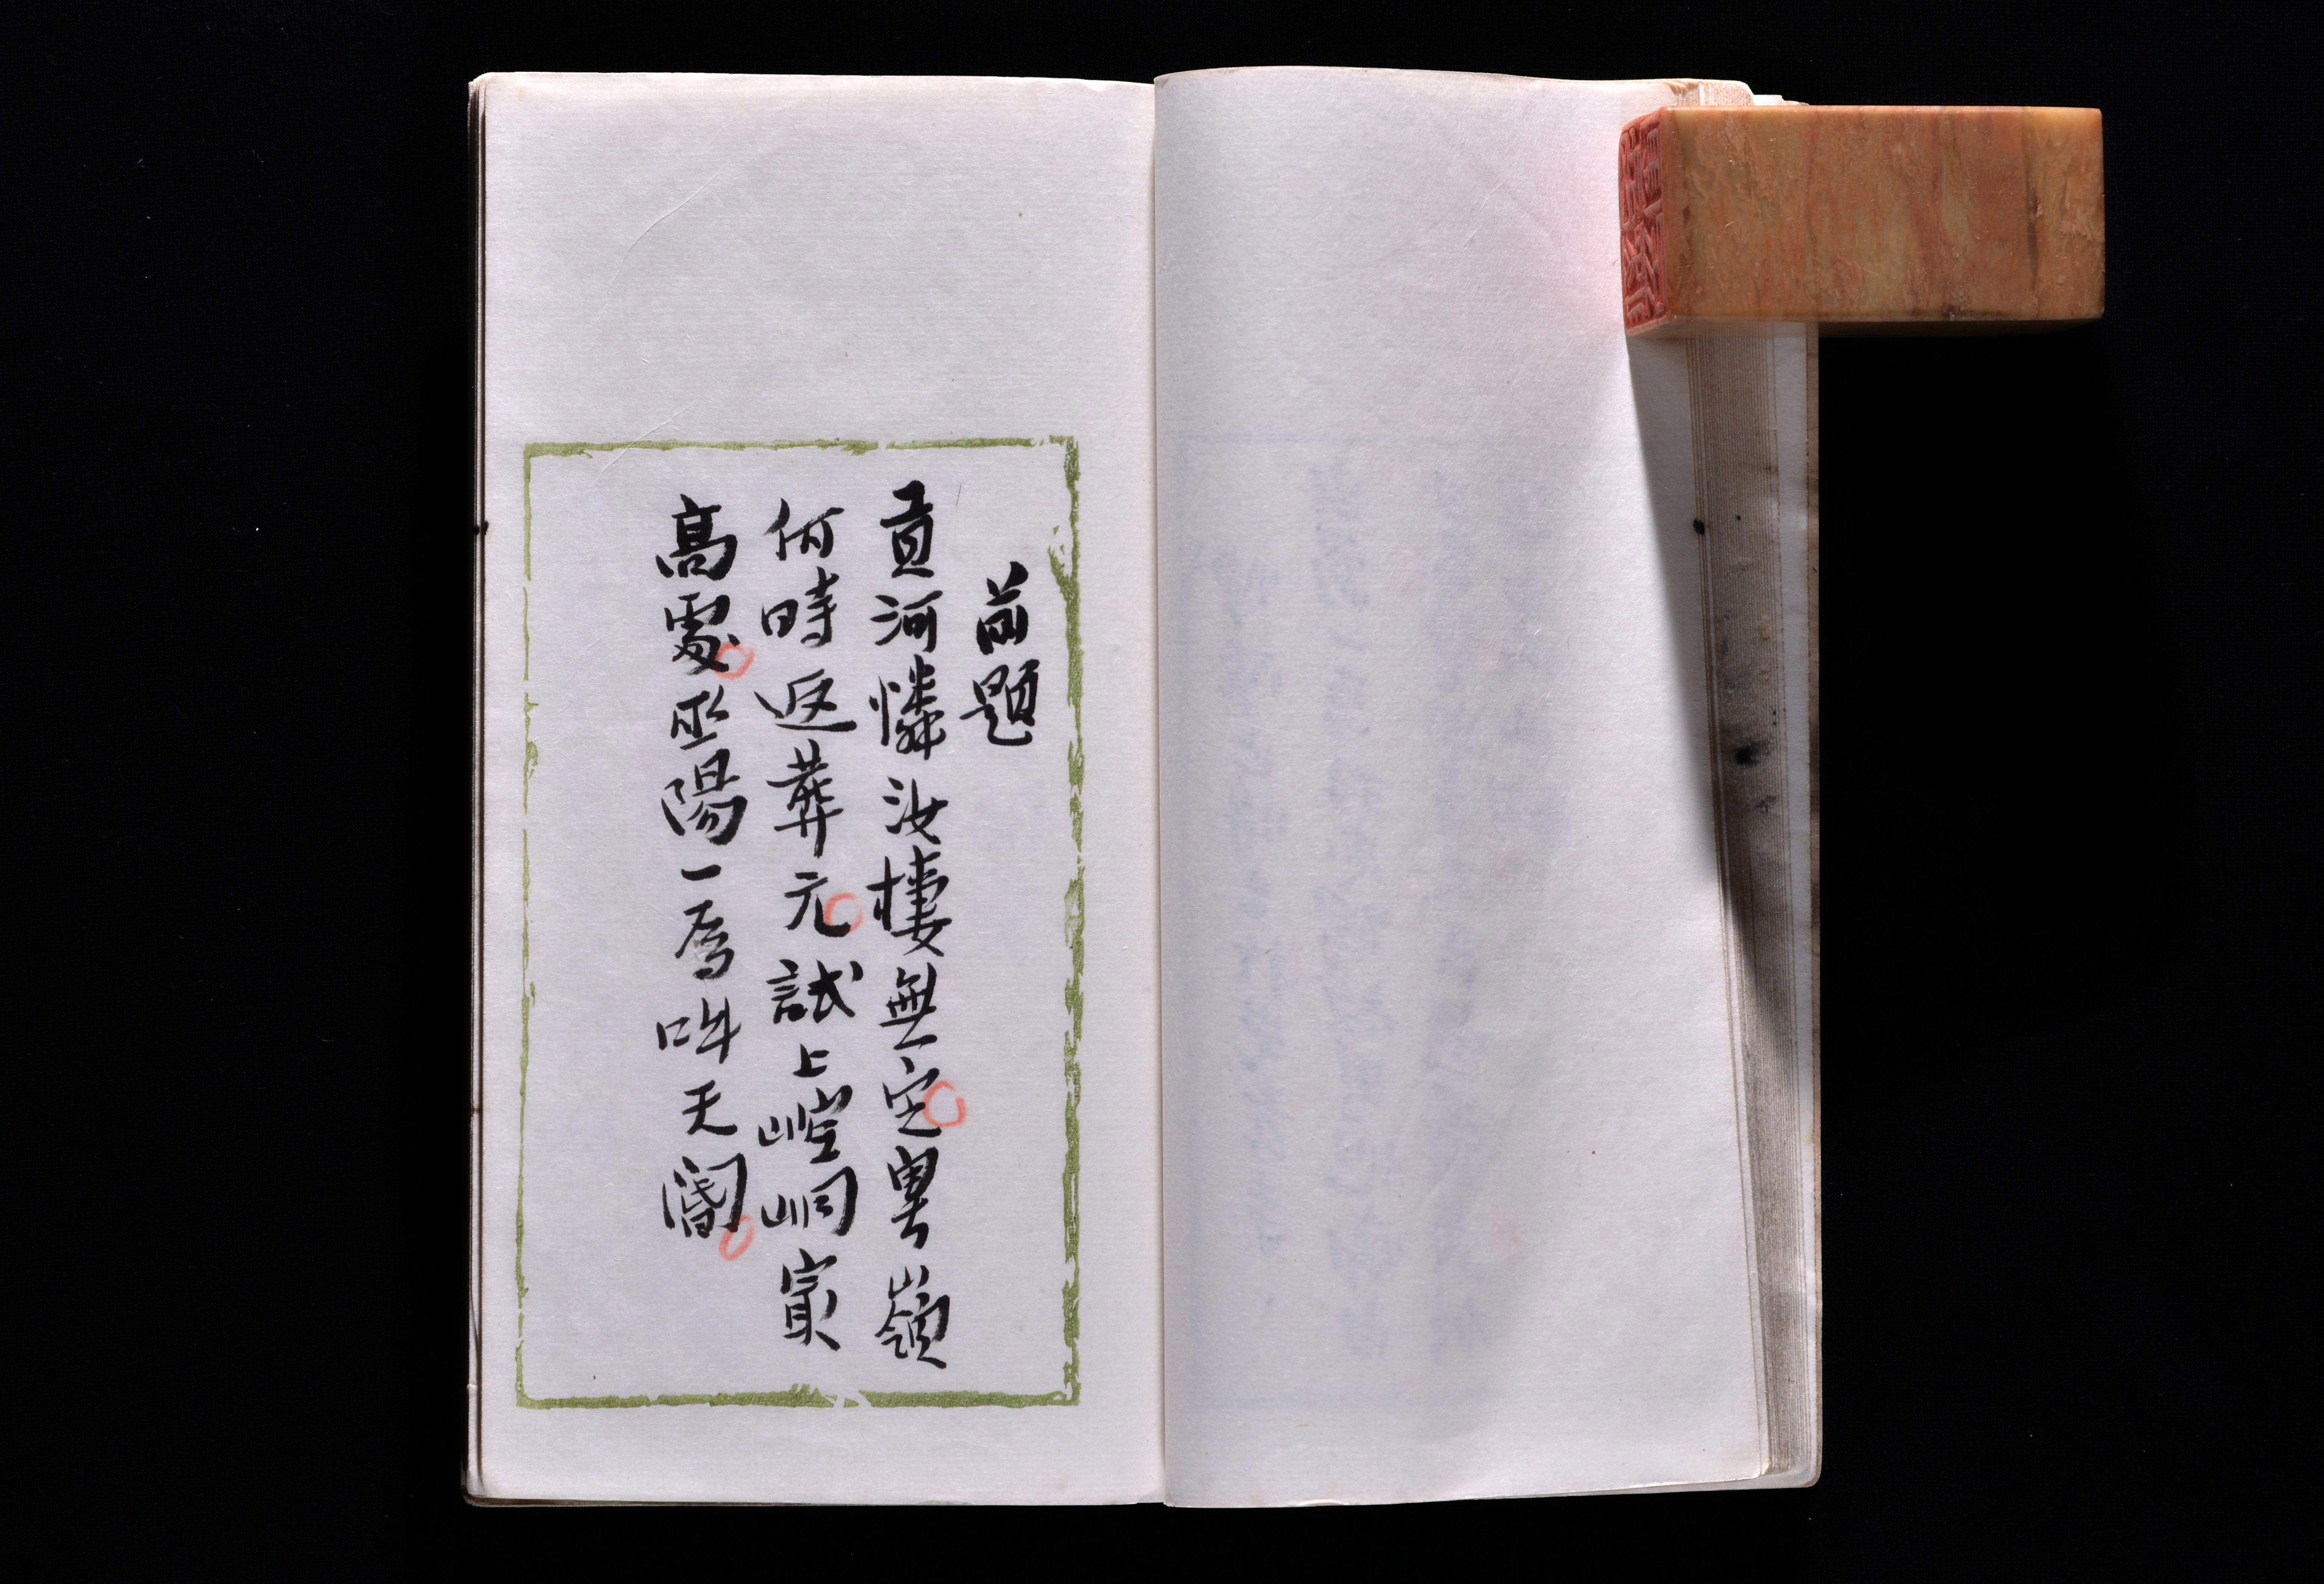 前題
貢河憐汝棲無定粵嶺
何時返葬元試上崆峒最
高處巫陽一爲呌天閽